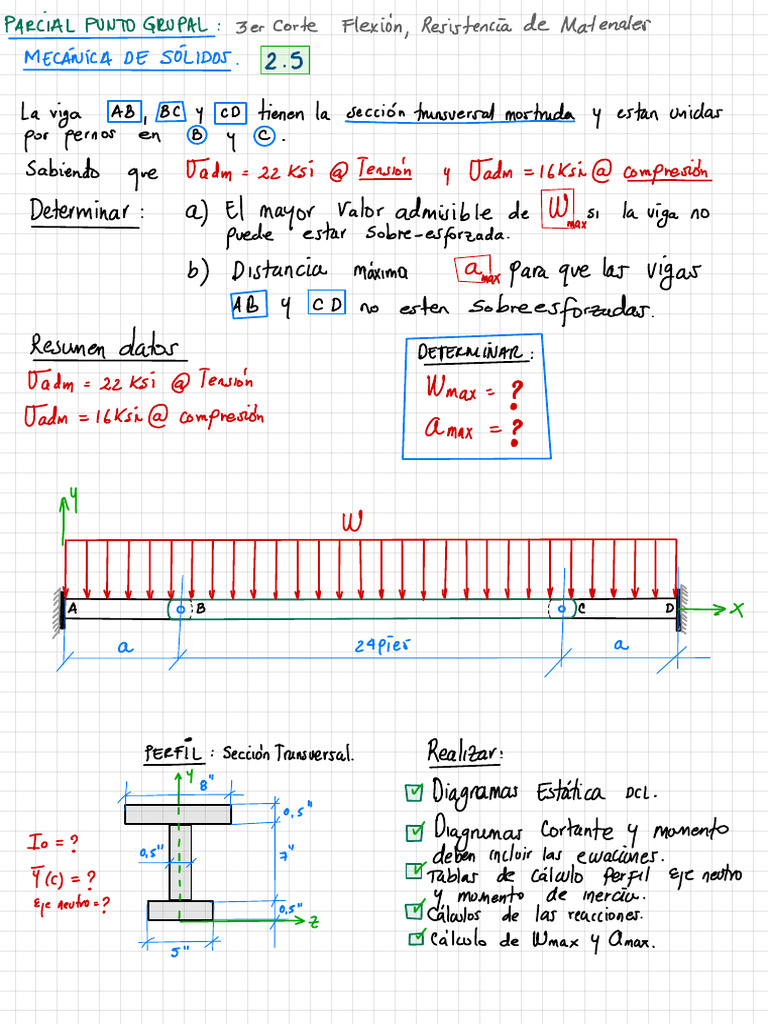 PARCIAL PUNTO GRUPAL : 3er Corte Flexión, Resistencia de Materiales
MECÁNICA DE SÓLIDOS. 2.5
La viga AB, BC y CD tienen la sección transversal mostrada y estan unidas
por pernos en B y C.
Sabiendo que σadm = 22 Ksi @ Tensión y σadm = 16Ksi @ compresión
Determinar : a) El mayor Valor admisible de Wmax si la viga no
puede estar sobre-esforzada.
b) Distancia máxima amax para que las vigas
AB y CD no esten sobreesforzadas.
Resumen datos
σadm = 22 Ksi @ Tensión
σadm = 16Ksi @ compresión
DETERMINAR :
Wmax = ?
amax = ?
y
W
A B C D x
a 24pies a
PERFIL : Sección Transversal.
y
8"
0,5"
0,5" 7"
0,5"
z
5"
Io = ?
Y̅(c) = ?
Eje neutro = ?
Realizar:
Diagramas Estática DCL.
Diagramas Cortante y momento
deben incluir las ecuaciones.
Tablas de cálculo Perfil Eje neutro
y momento de inercia.
Cálculos de las reacciones.
Cálculo de Wmax y amax.